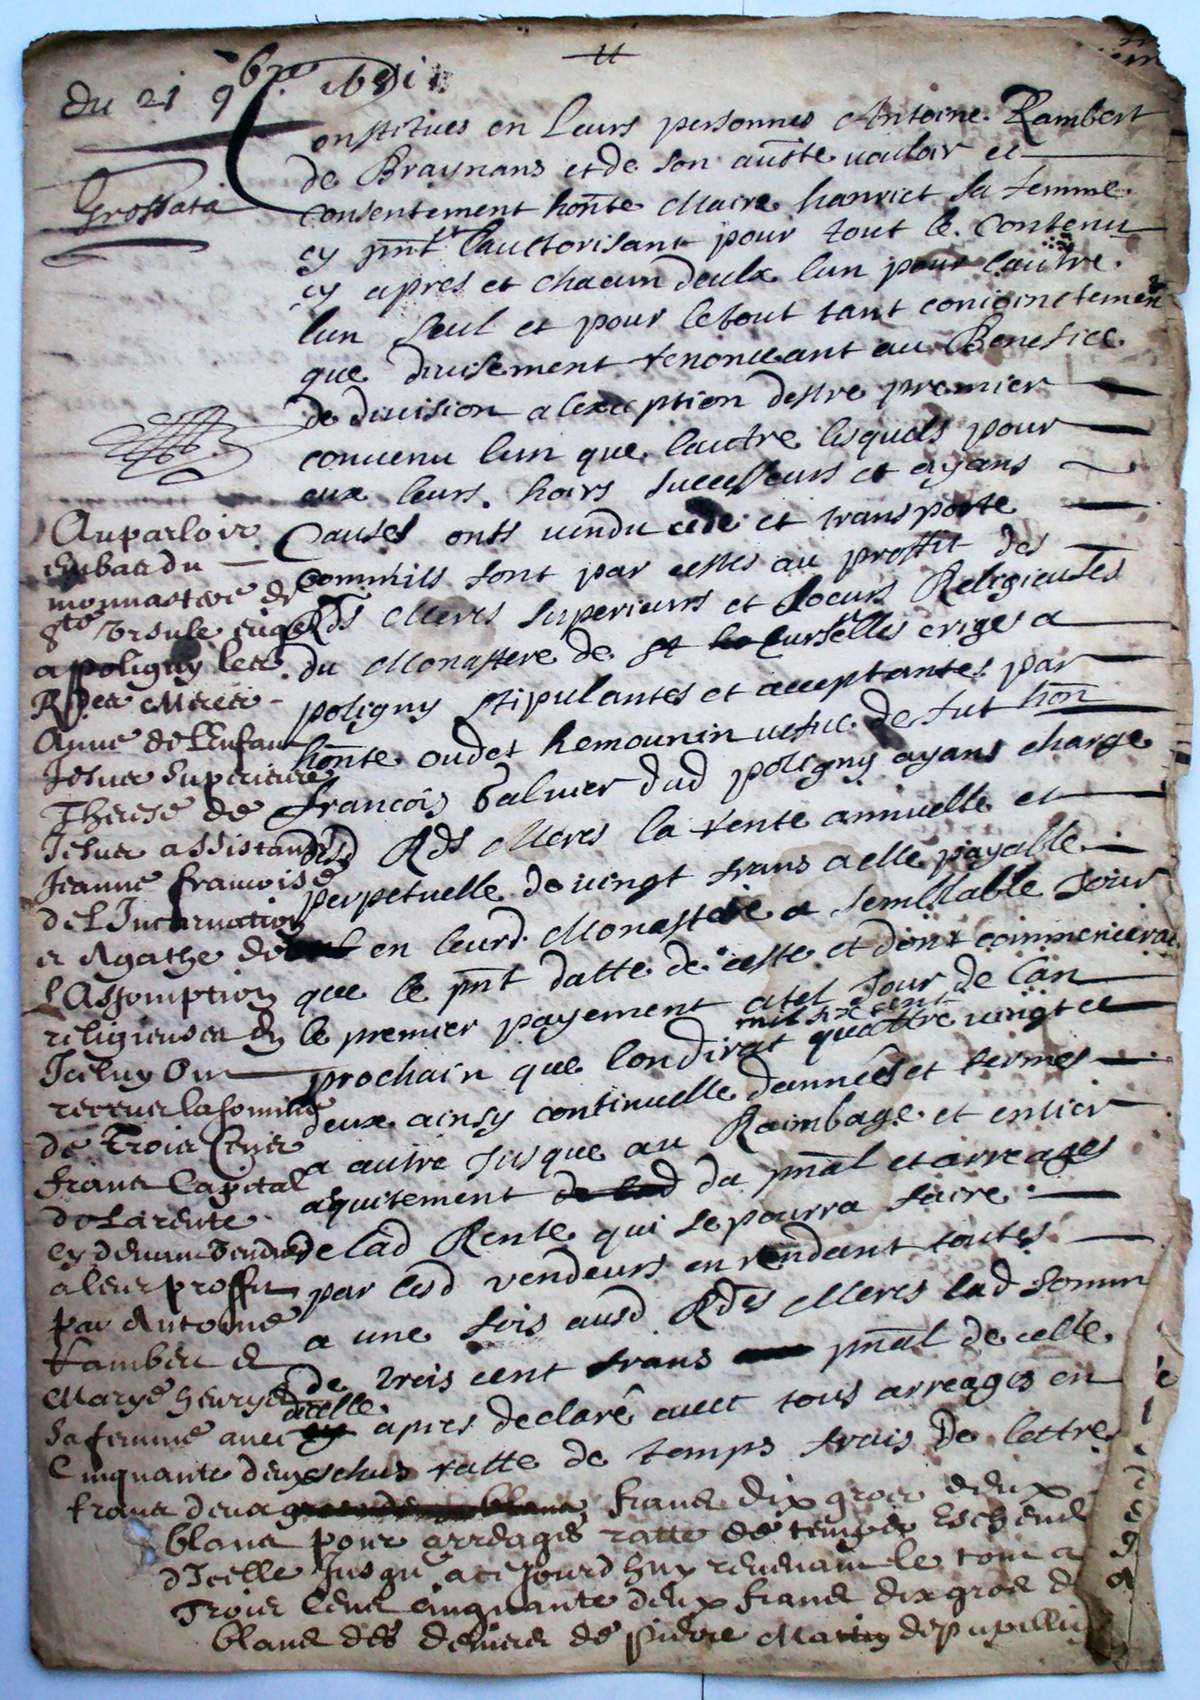 du 21 9bre
Constitues en Leurs personnes Antoine Rambert
de Braynans et de son auste uouloir et
Grossata
consentement honte Marie hanriet sa femme
cy pnt Lauctorisant pour tout le Contenu
cy apres et chacun deulx lun pour lautre
lun seul et pour letout tant conioinctement
que diuisement renonceant au Benefice
de diuision a lexception destre premier
conuenu lun que lautre lesquels pour
eux leurs hoirs successeurs et ayans
Causes onts uendu cede et transporte
comme ils font par cestes au proffit des
Rds Meres superieurs et soeurs Religieuses
du Monastere de st ursulles erige a
poligny stipulantes et acceptantes par
honte oudet hemounin uefue de fut hon
francois Baluier dud poligny ayans charge
desd Rds Meres la rente annuelle et
perpetuelle de uingt frans a elle payable
en leurd Monastere a semblable jour
que le pnt datte de ceste et dont commencerat
le premier payement a tel Jour de Lan
mil six cent
prochain que londirat quattre uingt et
deux ainsy continuelle dannées et termes
a autre jusque au Raimbage et entier
aquitement du pnal et arreages
de lad Rente qui se pourra faire
par lesd vendeurs en rendant toutes
a une fois ausd Rdes Meres lad somm
de trois cent frans pnal de celle
dicelle
apres declaré auec tous arreages en
escheus ratte de temps frais De lettre
Auparloir
Enbas du
monnastere de
ste Vrsule erige
a poligny les
Rdes Meres
Anne de L'Enfant
Jesus superieure
Therese de
Jesus assistante
Jeanne francoise
de L'Incarnation
et Agathe de
L'Assomption
religieuses en
Iceluy Ont
receue la somme
de Trois Cens
frans Capital
de La rente
cy deuant vendue
a leur proffit
par Antoine
Rambert et
Marye henryet
sa femme auec
Cinquante deux
frans deux frans dix gros deux
blans pour arreages ratte de temps Escheus
d'Icelle Jusqu'a ce Jourd'huy reuenant le tout a
Trois Cens cinquante deux frans dix gros d
blans des deniers de pierre Martin de pupillin